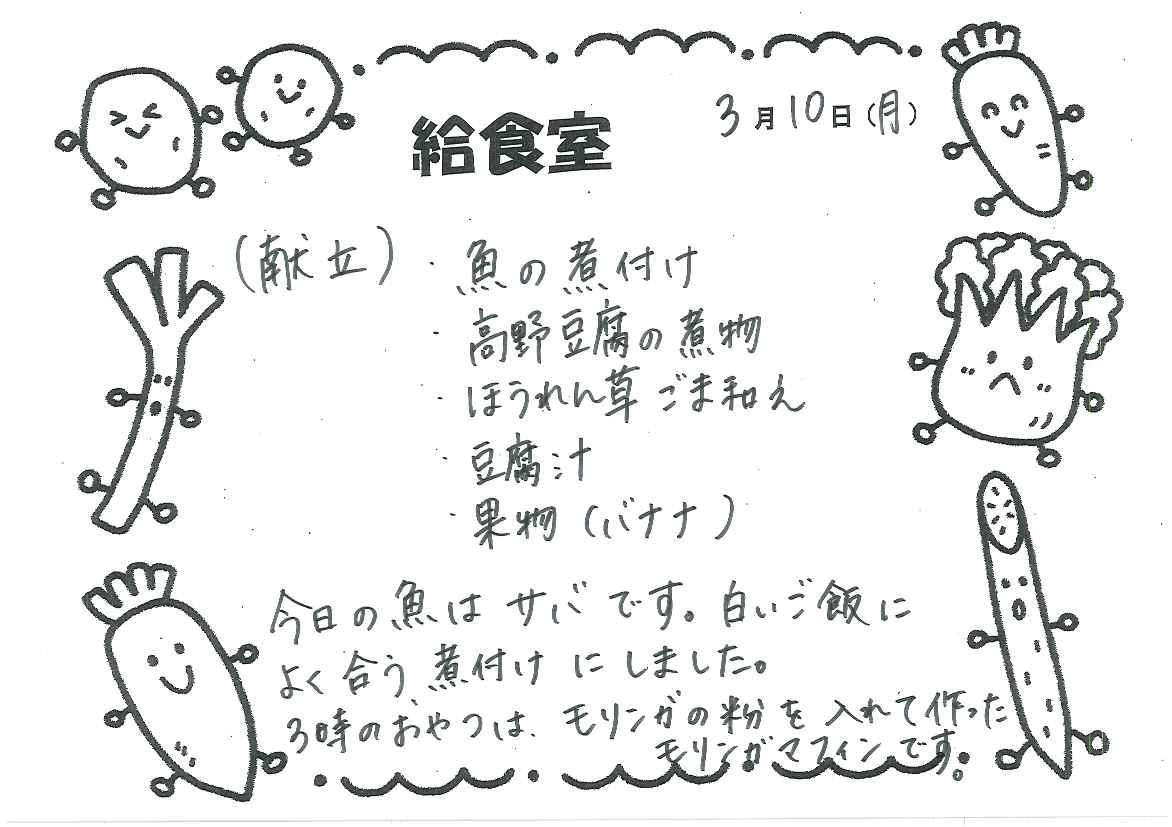 給食室
3月10日(月)
(献立)・魚の煮付け
・高野豆腐の煮物
・ほうれん草ごま和え
・豆腐汁
・果物(バナナ)
今日の魚はサバです。白いご飯に
よく合う煮付けにしました。
3時のおやつは、モリンガの粉を入れて作った
モリンガマフィンです。